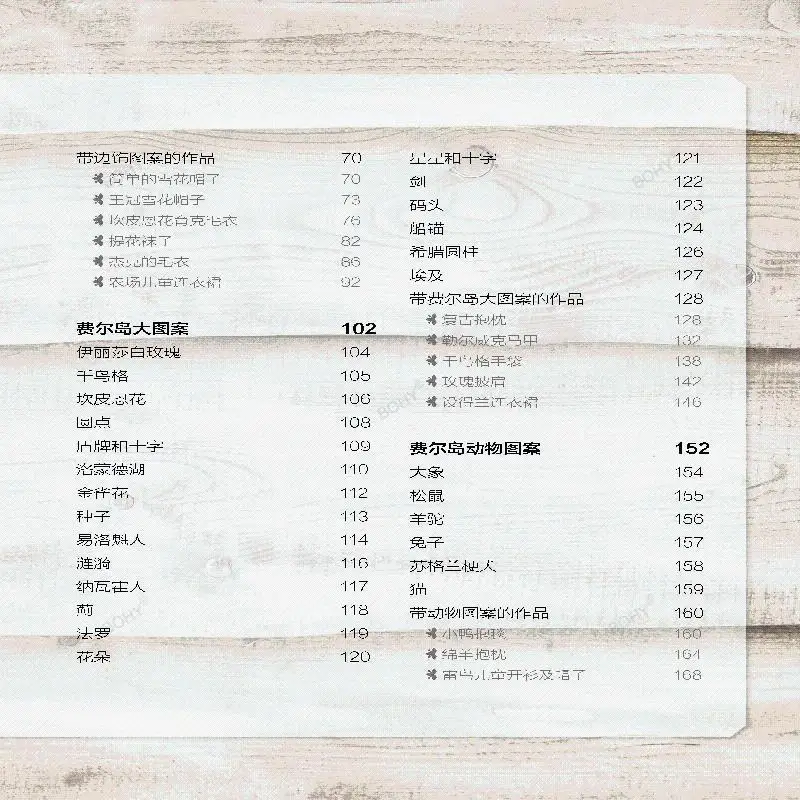 带边饰图案的作品 70
简单的雪花帽子 70
王冠雪花帽子 73
坎皮恩花育克毛衣 76
提花袜子 82
杰克的毛衣 86
农场儿童连衣裙 92
费尔岛大图案 102
伊丽莎白玫瑰 104
千鸟格 105
坎皮恩花 106
圆点 108
盾牌和十字 109
洛蒙德湖 110
金雀花 112
种子 113
易洛魁人 114
涟漪 116
纳瓦霍人 117
蓟 118
法罗 119
花朵 120
星星和十字 121
剑 122
码头 123
船锚 124
希腊圆柱 126
埃及 127
带费尔岛大图案的作品 128
复古抱枕 128
勒尔威克马甲 132
千鸟格手袋 138
玫瑰披肩 142
设得兰连衣裙 146
费尔岛动物图案 152
大象 154
松鼠 155
羊驼 156
兔子 157
苏格兰梗犬 158
猫 159
带动物图案的作品 160
小鸭抱毯 160
绵羊抱枕 164
雷鸟儿童开衫及帽子 168